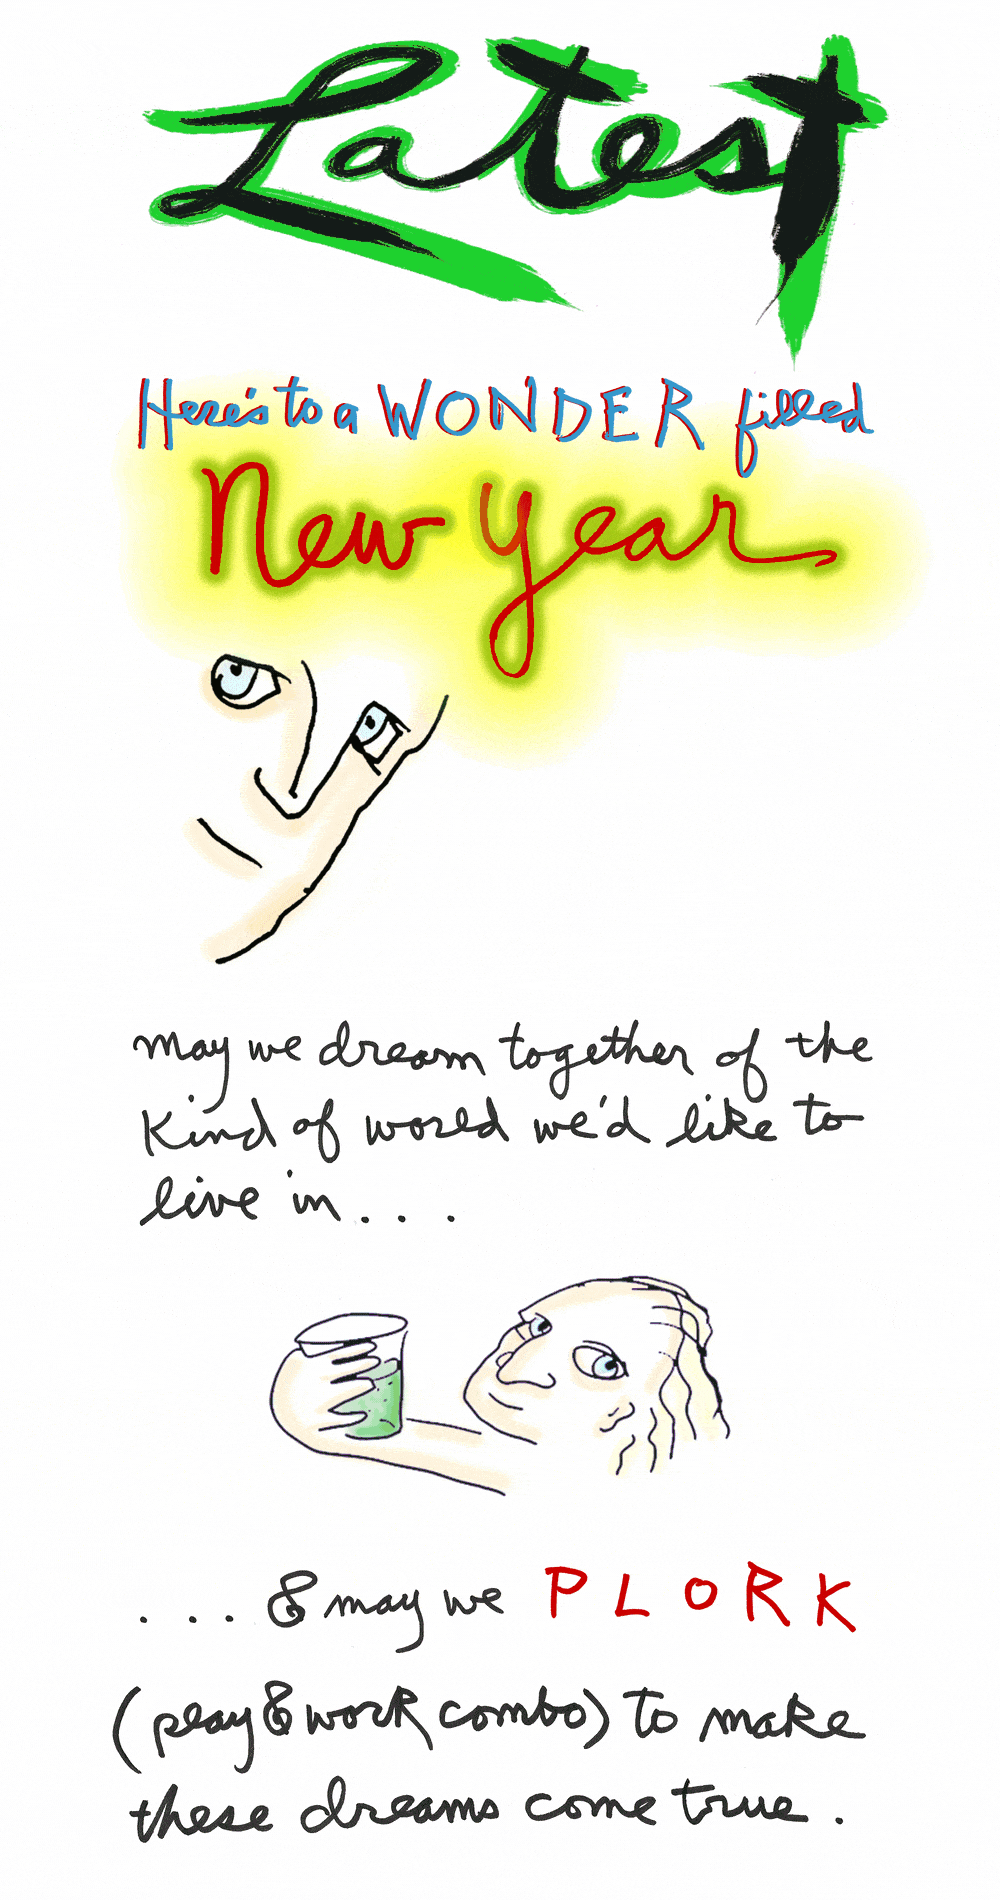 Latest
Here's to a WONDER filled
New Year
may we dream together of the
Kind of world we'd like to
live in . . .
. . . & may we PLORK
(play & work combo) to make
these dreams come true .